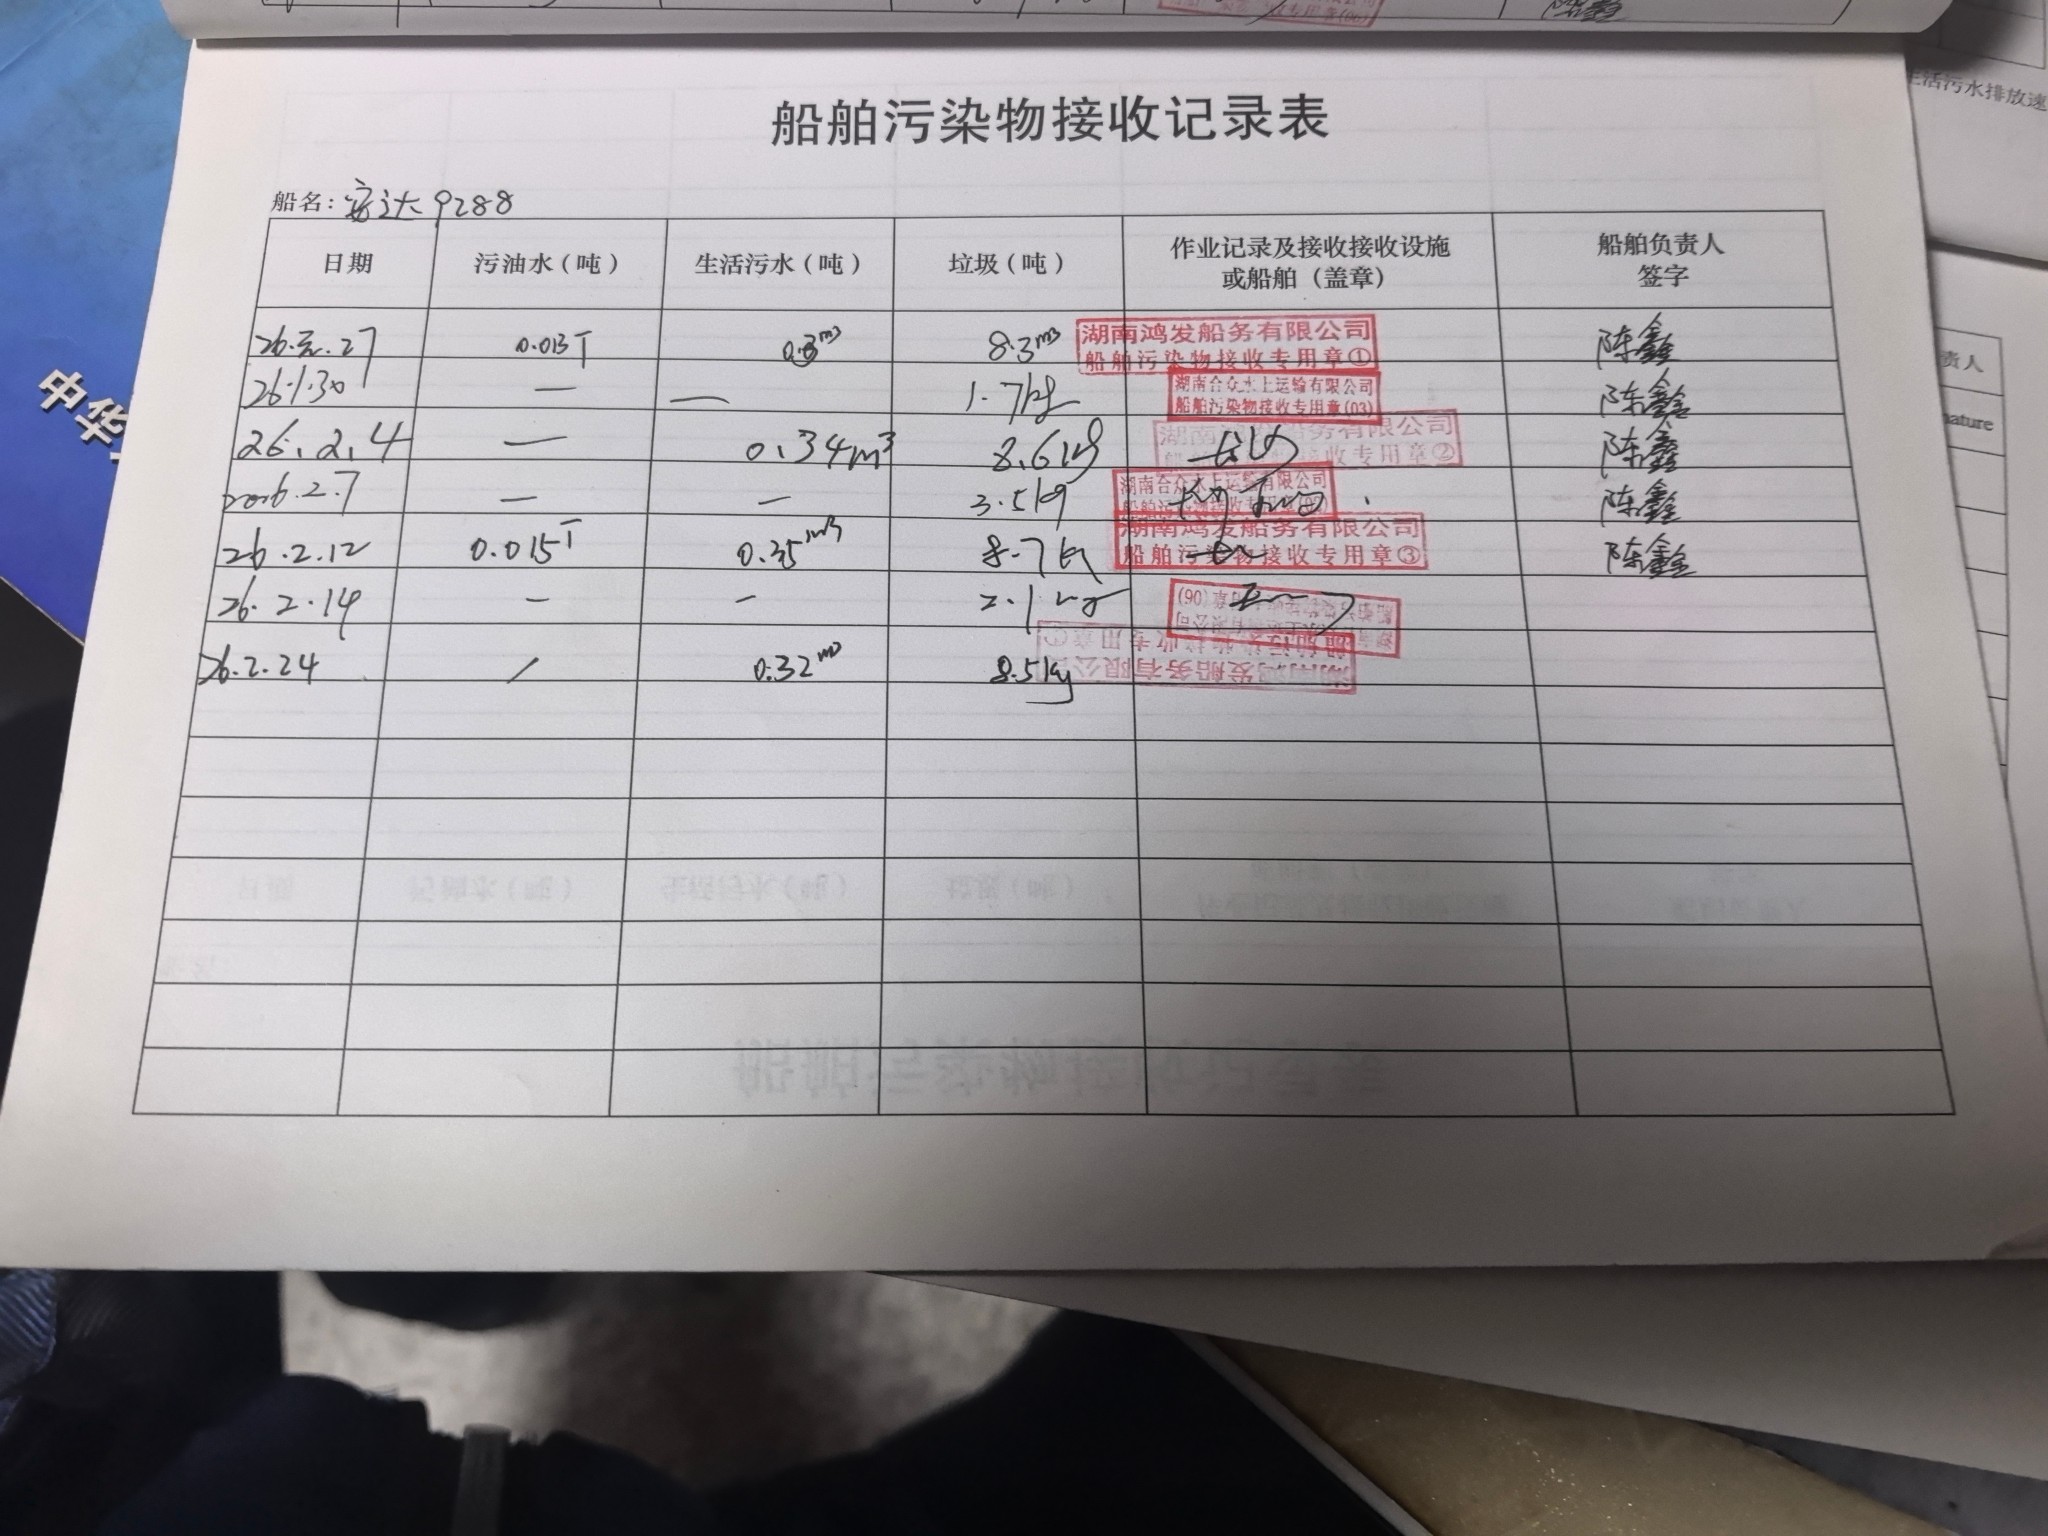 专用章(06)
陈鑫
生活污水排放速
船舶污染物接收记录表
船名：安达9288
日期 污油水（吨） 生活污水（吨） 垃圾（吨） 作业记录及接收接收设施或船舶（盖章） 船舶负责人签字
26.元.27 0.013T 0.3m3 8.3m3 湖南鸿发船务有限公司 船舶污染物接收专用章① 陈鑫
26.1.30 — — 1.7kg 湖南合众水上运输有限公司 船舶污染物接收专用章(03) 陈鑫
26.2.4 — 0.34m3 8.6kg 湖南鸿发船务有限公司 船舶污染物接收专用章② 长沙 陈鑫
2026.2.7 — — 3.5kg 湖南合众水上运输有限公司 船舶污染物接收专用章 陈鑫
26.2.12 0.015T 0.35m3 8.7kg 湖南鸿发船务有限公司 船舶污染物接收专用章③ 陈鑫
26.2.14 — — 2.1kg (06)
26.2.24 / 0.32m3 8.5kg 湖南鸿发船务有限公司 船舶污染物接收专用章①
中华
责人
nature